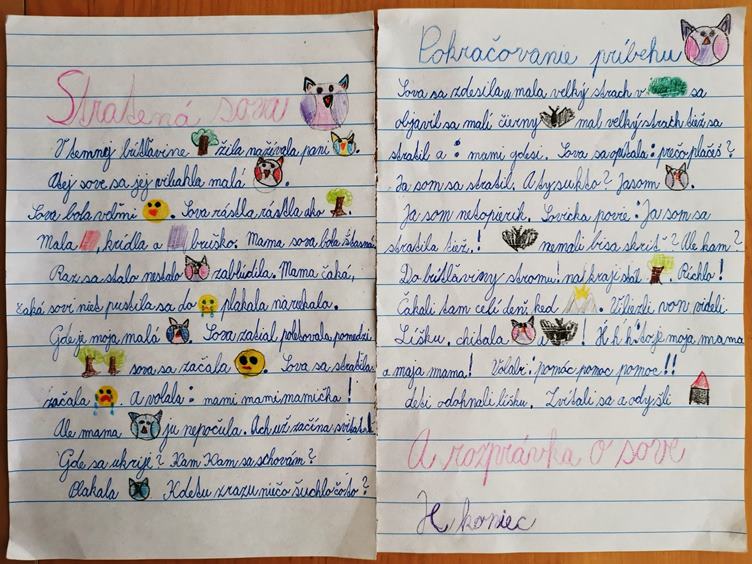 Stratená sova
V temnej bútľavine žila nažívala pani
A tej sove sa jej viliahla malá .
Sova bola veľmi . Sova rástla rástla ako .
Mala , krídla a bruško. Mama sova bola šťastná
Raz sa stalo nestalo zablúdila. Mama čaká,
čaká sovi niet pustila sa do plakala nariekala.
Gde je moja malá . Sova zatiaľ poletovala pomedzi
sova sa začala . Sova sa stratila
začala A volala: mami mami mamička!
Ale mama ju nepočula. Ach už začína svitať!
Gde sa ukrije? Kam Kam sa schovám?
Plakala Kdetu zrazu niečo šuchlo čo to?
Pokračovanie príbehu
Sova sa zdesila a mala velký strach v sa
objavil sa malí čierny mal velký strach tiež sa
stratil a : mami gdesi. Sova sa opítala: prečo plačeš?
Ja som sa stratil. A ty su kto? Ja som .
Ja som netopierik. Sovička povie: Ja som sa
stratila tiež.! nemali bi sa skriť? Ale kam?
Do bútľaviny stromu! na kraji stál . Richlo!
Čakali tam celí deň, keď . Viliezli von videli
Líšku, chitala a ! H h h: to je moja mama
a moja mama! Volali: pomóc pomoc pomoc!!
deti odohnali líšku. Zvítali sa a odyšli
A rozprávka o sove
je koniec